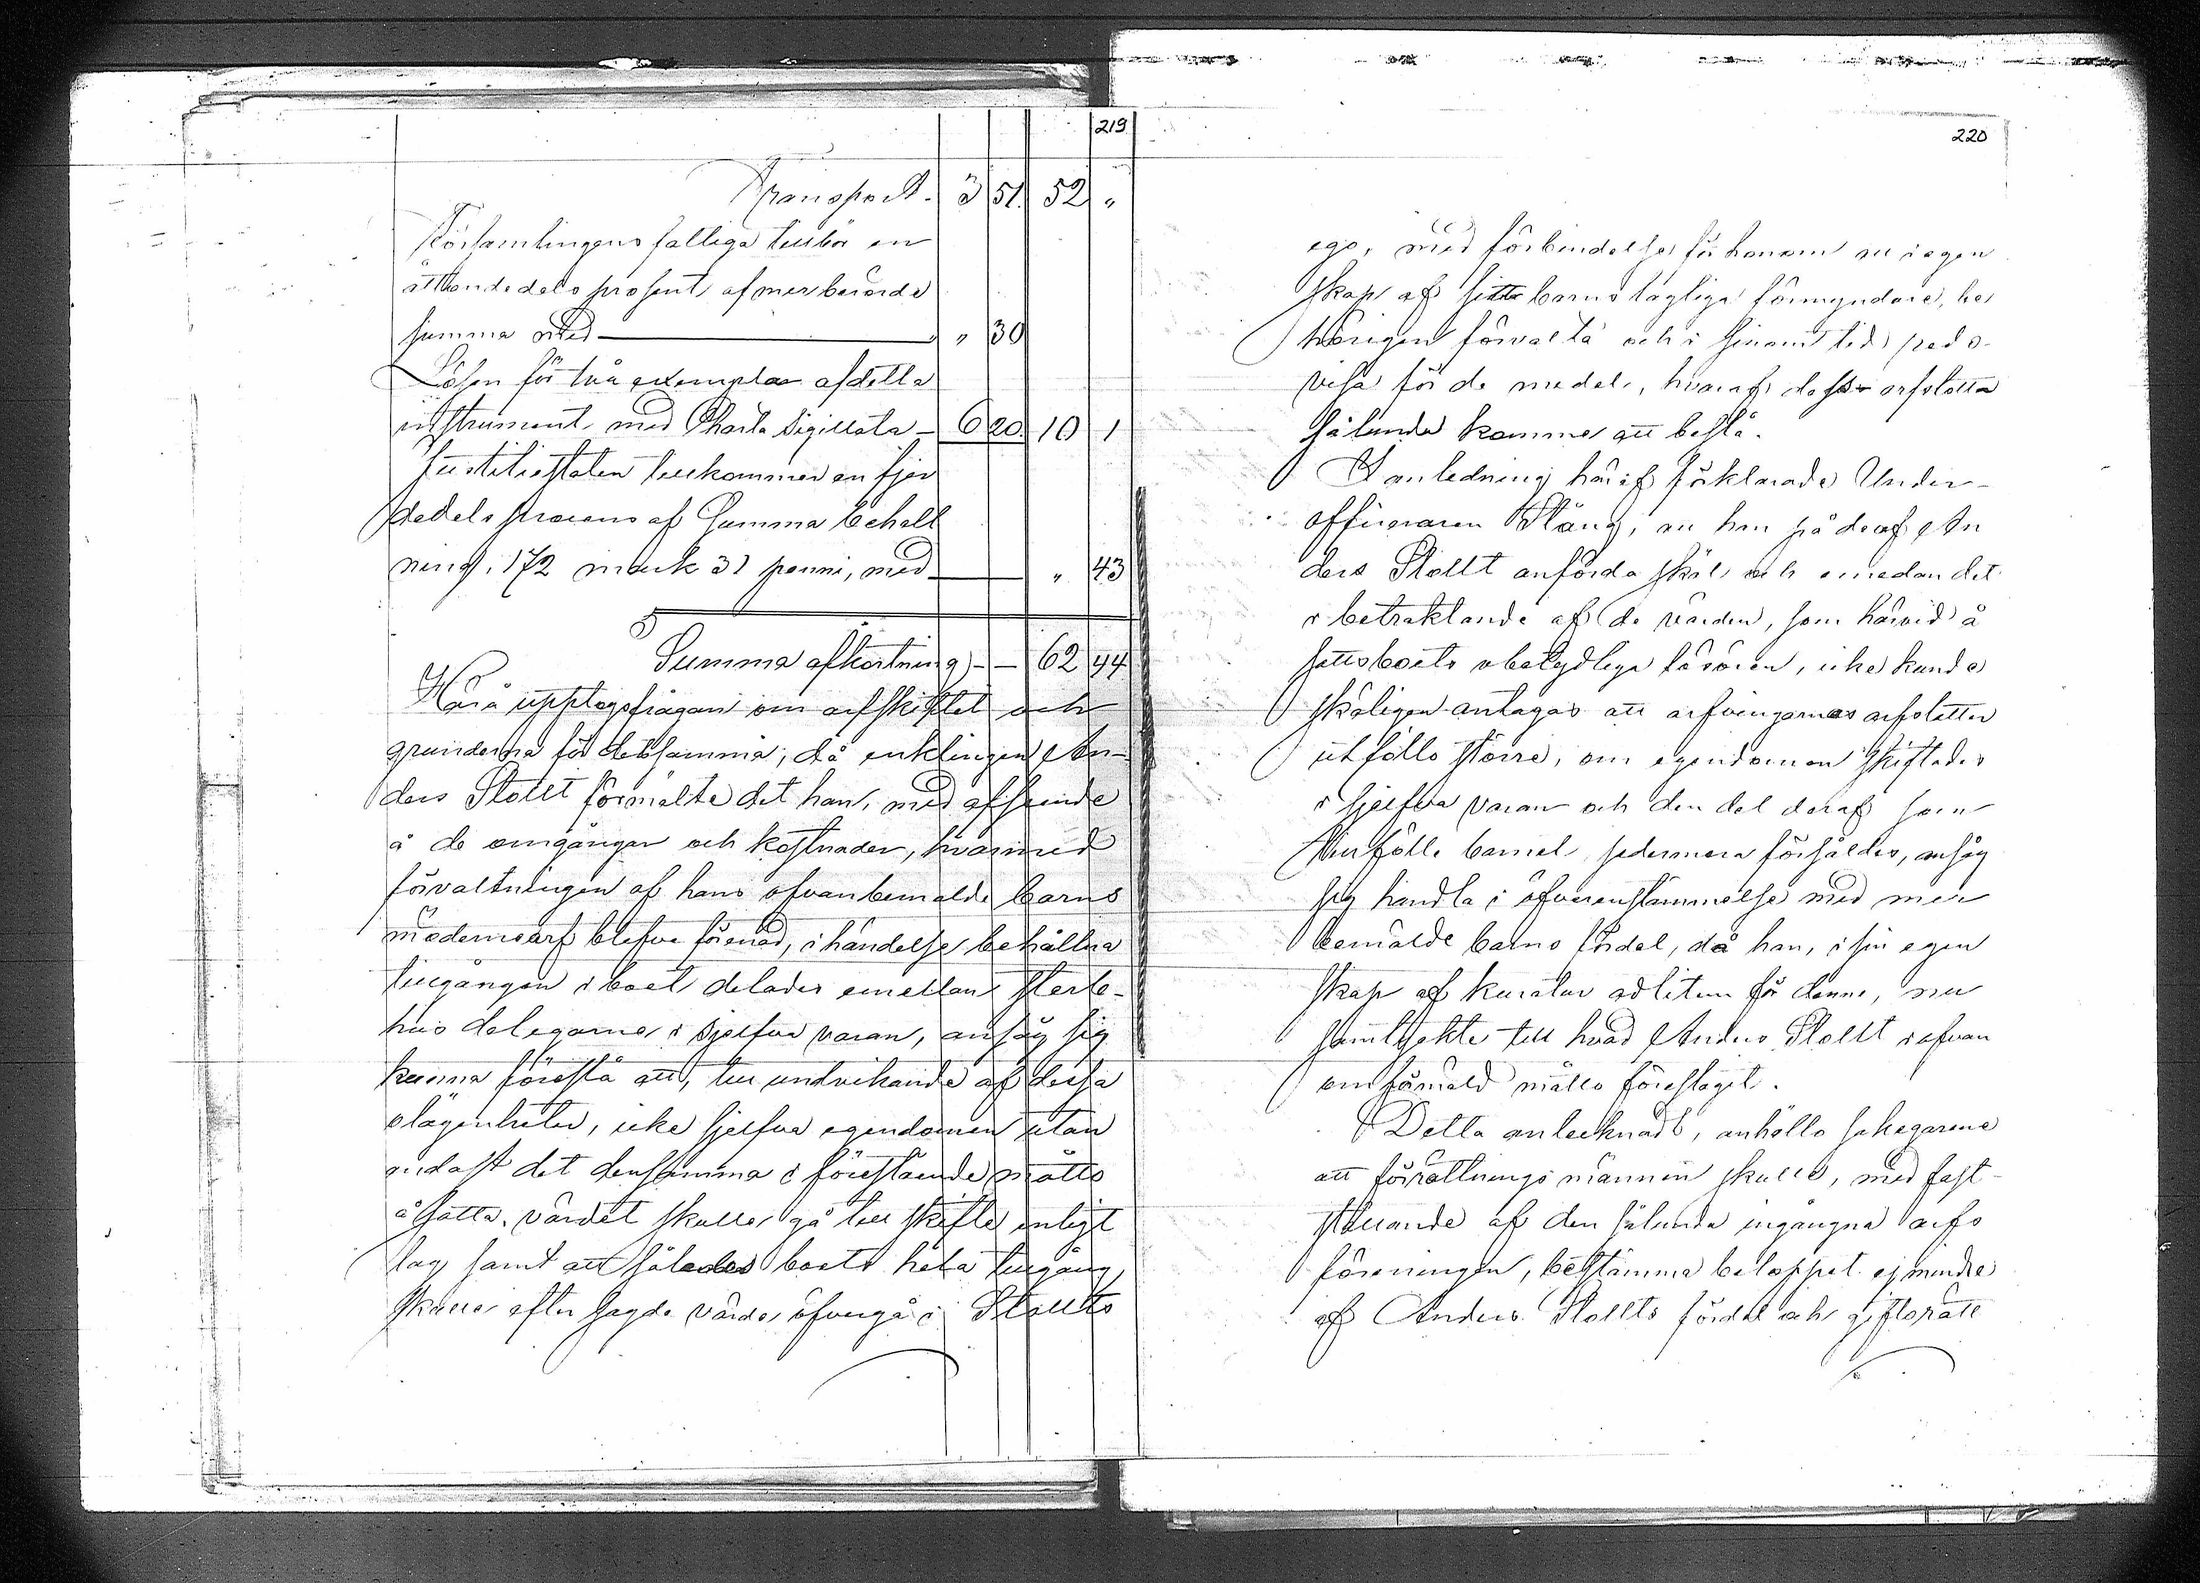 219
Transport. 3 51. 52 „
Församlingens fattiga tillkör en
åttondedels prosent af mer berörde
summa med — „ 30
Lösen för två exemplar af detta
instrument med Charta Sigillata — 6 20. 10 1
Justitiestaten tillkommer en fjer
dedels procens af Summa behåll
ning, 172 mark 31 penni, med — „ 43
Summa afkortning — 62 44
Härå upptogs frågan om arfskiftet och
grunderna för detsamma, då enklingen An-
ders Stollt förmälte det han, med afseende
å de omgångar och kostnader, hvarmed
förvaltningen af hans ofvanbemälde barns
mödernearf blefve förenad, i händelse behållna
tillgången i boet delades emellan sterb-
hus delegarne i sjelfva varan, ansåg sig
kunna föreslå att, till undvikande af dessa
olägenheter, icke sjelfva egendomen utan
endast det densamma i förestående måtto
åsatta, värdet skulle gå till skifte enligt
lag samt att således boets hela tillgång
skulle efter sagde värde öfvergå i Stollts
220
ego, med förbindelse för honom att i egen
skap af sitt barns laglige förmyndare, be
hörigen förvalta och i sinom tid redo-
visa för de medel, hvaraf dess arfslotter
sålunda komme att bestå.
I anledning häraf förklarade Under-
officeraren Stång, att han på de af An
ders Stollt anförda skäl och emedan det
i betraktande af de värden, som härvid å
sattes boets obetydliga lösören, icke kunde
skäligen antagas att arfvingarnas arfslotter
utfölle större, om egendomen skiftades
i sjelfva varan och den del deraf som
tillfölle barnet sedermera försåldes, ansåg
sig handla i öfverensstämmelse med mer
bemälde barns fördel, då han, i sin egen
skap af kurator adlitem för denne, nu
samtyckte till hvad Anders Stollt i ofvan
omförmäld måtto föreslagit.
Detta antecknadt, anhöllo sakegarene
att förrättningsmännen skulle, med fast-
ställande af den sålunda ingångna arfs
föreningen, bestämma beloppet ej mindre
af Anders Stollts fördel och giftorätt